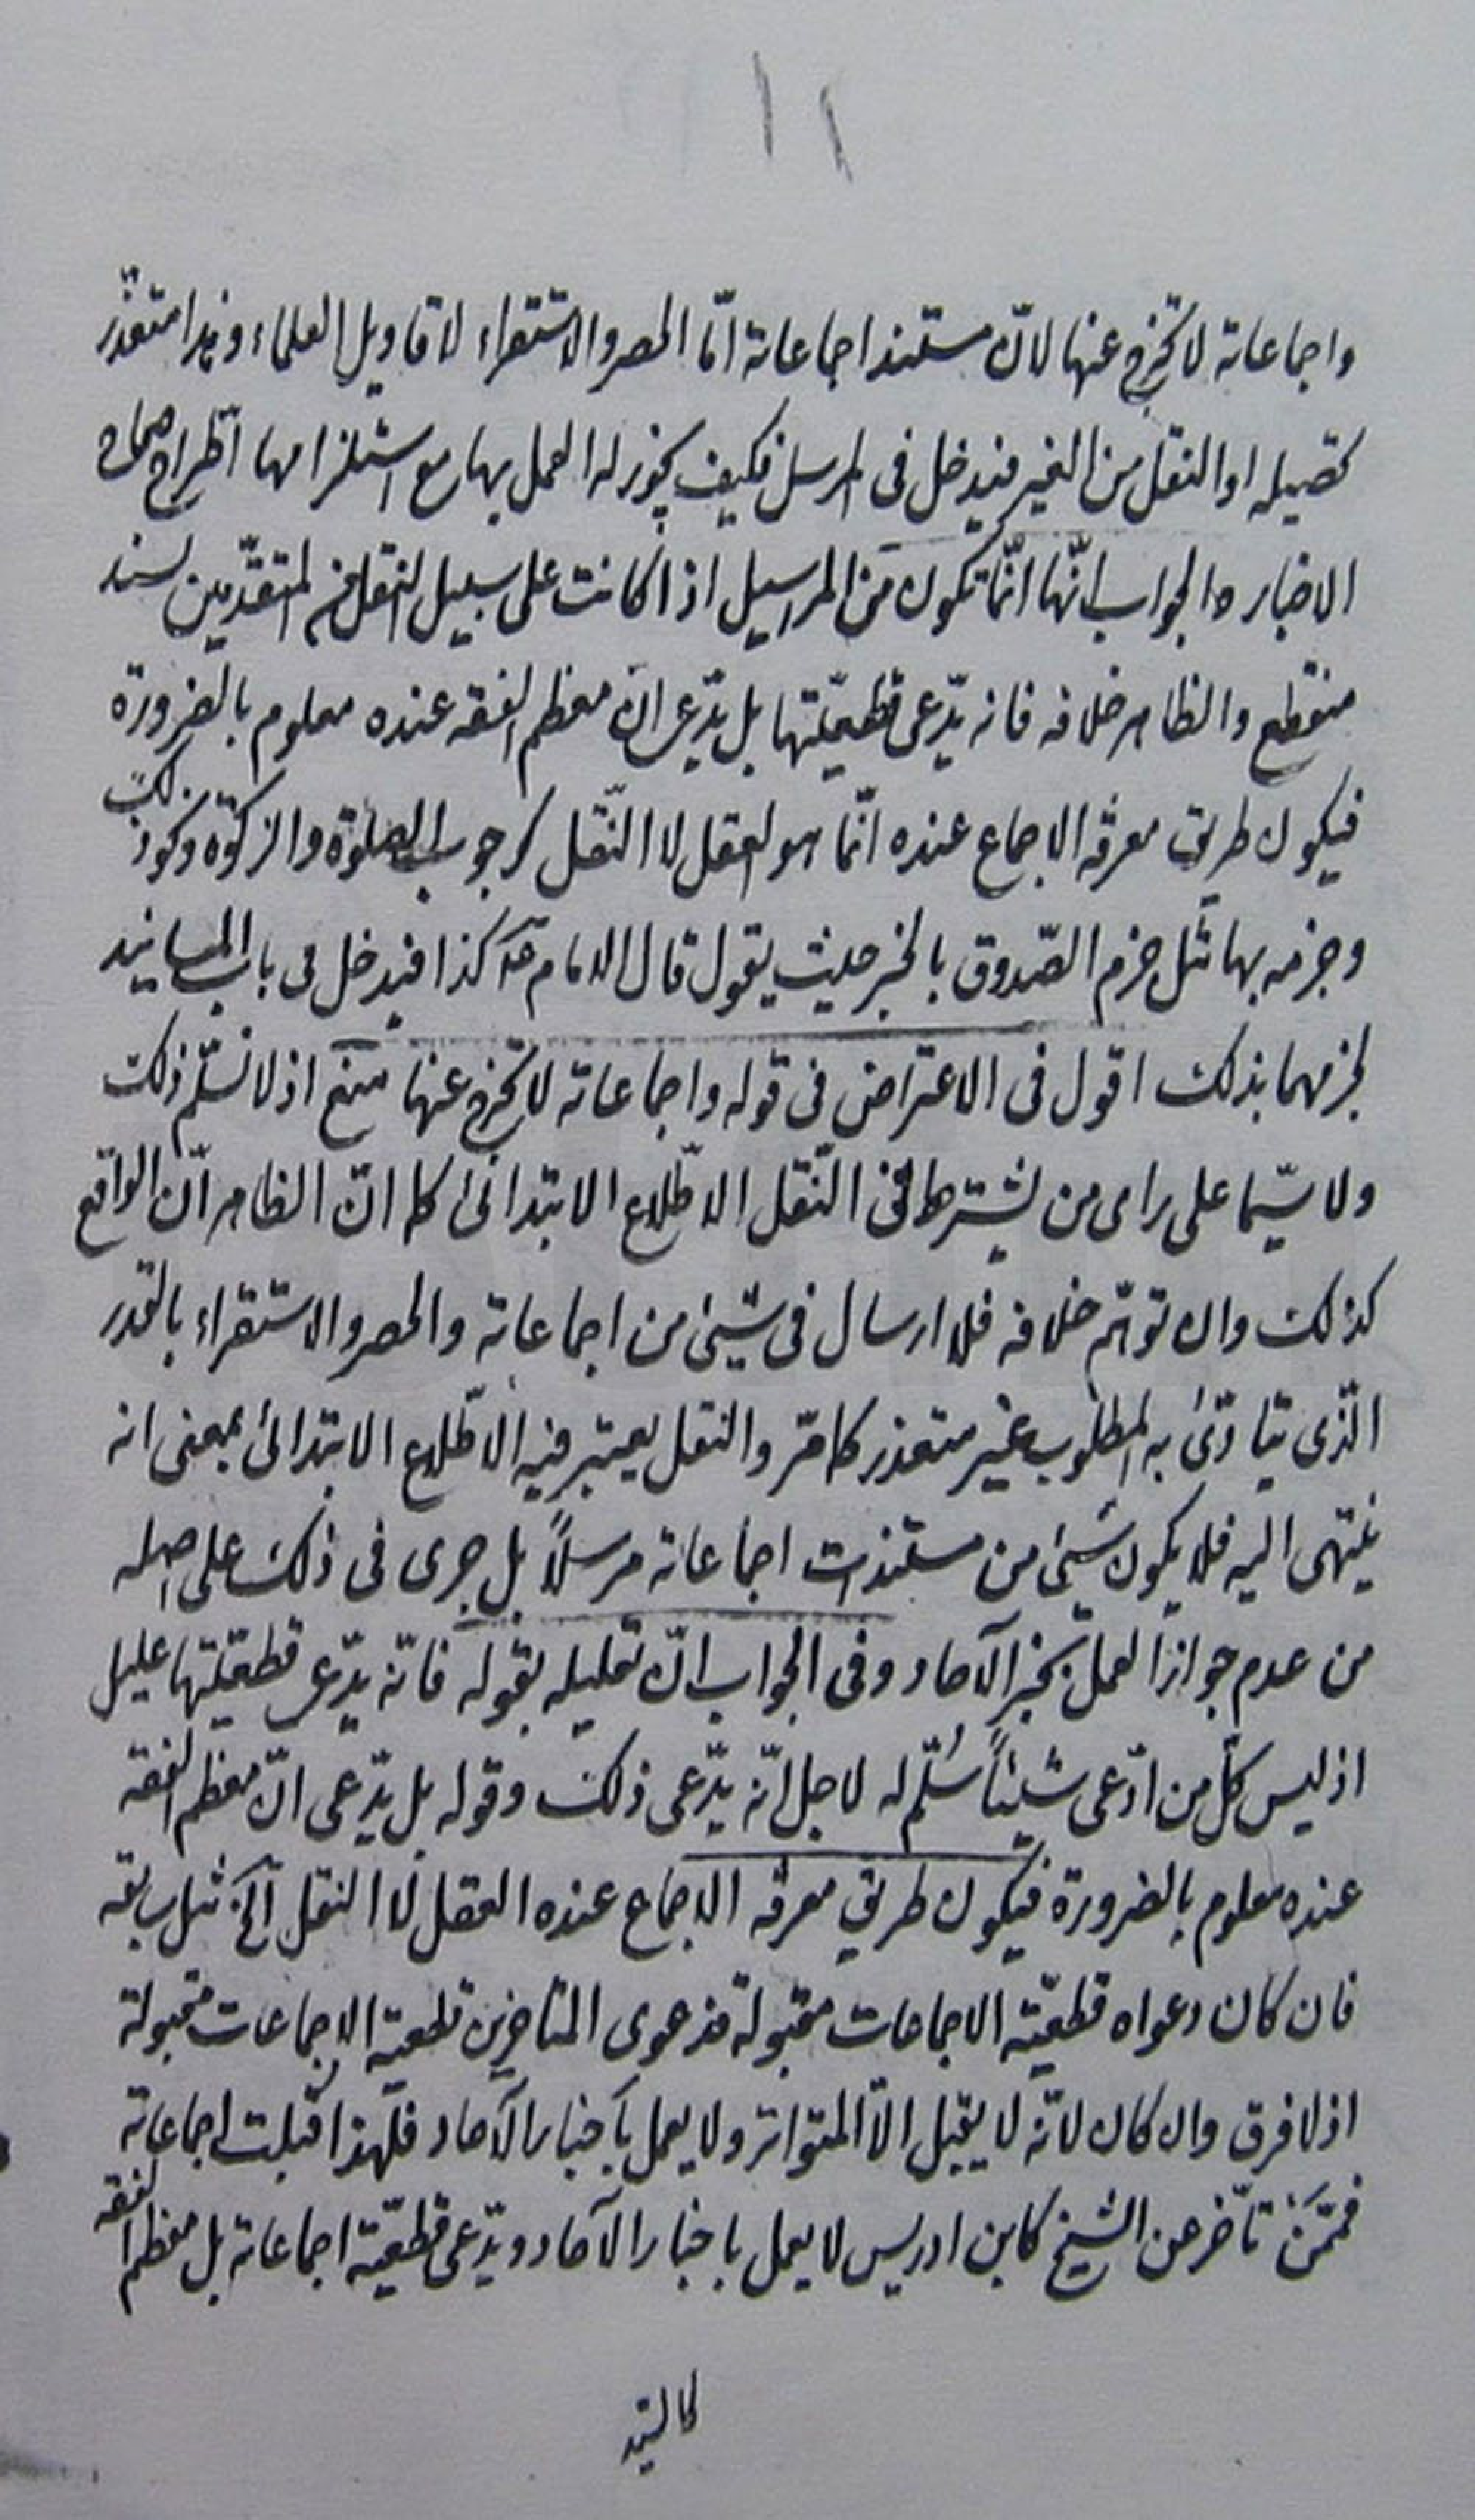 ١١
واجماعاته لا تخرج عنها لانّ مستند اجماعاته امّا الحصر والاستقراء لاقاويل العلماء وهذا متعذّر
تحصيله او النقل من الغير فيدخل فى المرسل فكيف يجوز له العمل بها مع استلزامها اطّراح صحاح
الاخبار والجواب انّها انّما تكون من المراسيل اذا كانت على سبيل النقل من المتقدّمين بسند
منقطع والظاهر خلافه فانه يدّعى قطعيّتها بل يدّعى ان معظم الفقه عنده معلوم بالضرورة
فيكون طريق معرفة الاجماع عنده انّما هو العقل لا النّقل كوجوب الصلوة والزكوة ونحو ذلك
وجزمه بها مثل جزم الصّدوق بالخبر حيث يقول قال الامام ع كذا فيدخل فى باب المسانيد
لجزمهما بذلك اقول فى الاعتراض فى قوله واجماعاته لا تخرج عنها منع اذ لا نسلّم ذلك
ولا سيّما على راى من يشترط فى النّقل الاطّلاع الابتدائى كما انّ الظاهر انّ الواقع
كذلك وان توهّم خلافه فلا ارسال فى شيئ من اجماعاته والحصر والاستقراء بالقدر
الّذى يتادّى به المطلوب غير متعذر كما مرّ والنقل يعتبر فيه الاطّلاع الابتدائى بمعنى انه
ينتهى اليه فلا يكون شيئ من مستندات اجماعاته مرسلاً بل جرى فى ذلك على اصله
من عدم جواز العمل بخبر الآحاد وفى الجواب انّ تعليله بقوله فانّه يدّعى قطعيّتها عليل
اذ ليس كلّ من ادّعى شيئاً سُلّم له لاجل انّه يدّعى ذلك وقوله بل يدّعى انّ معظم الفقه
عنده معلوم بالضرورة فيكون طريق معرفة الاجماع عنده العقل لا النقل آلخ مثل سابقه
فان كان دعواه قطعيّة الاجماعات مقبولة فدعوى المتاخرين قطعية الاجماعات مقبولة
اذ لا فرق وان كان لانّه لا يقبل الّا المتواتر ولا يعمل باخبار الآحاد فلهذا قبلت اجماعاته
فممّن تاخّر عن الشيخ كابن ادريس لا يعمل باخبار الآحاد ويدّعى قطعيّة اجماعاته بل معظم الفقه
كالسيّد